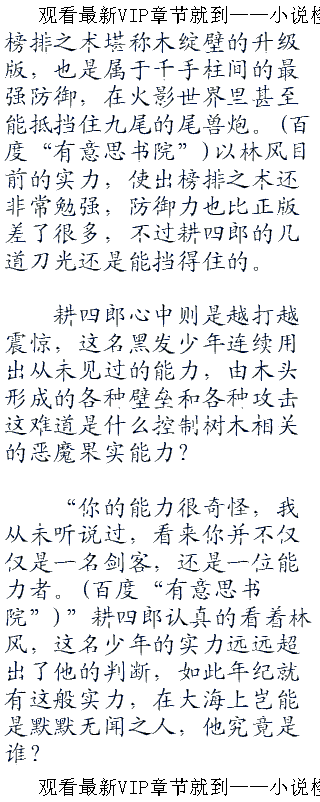 观看最新VIP章节就到——小说
榜排之术堪称木绽壁的升级
版，也是属于千手柱间的最
强防御，在火影世界里甚至
能抵挡住九尾的尾兽炮。(百
度“有意思书院”)以林风目
前的实力，使出榜排之术还
非常勉强，防御力也比正版
差了很多，不过耕四郎的几
道刀光还是能挡得住的。
耕四郎心中则是越打越
震惊，这名黑发少年连续用
出从未见过的能力，由木头
形成的各种壁垒和各种攻击
这难道是什么控制树木相关
的恶魔果实能力？
“你的能力很奇怪，我
从未听说过，看来你并不仅
仅是一名剑客，还是一位能
力者。(百度“有意思书
院”)”耕四郎认真的看着林
风，这名少年的实力远远超
出了他的判断，如此年纪就
有这般实力，在大海上岂能
是默默无闻之人，他究竟是
谁？
观看最新VIP章节就到——小说